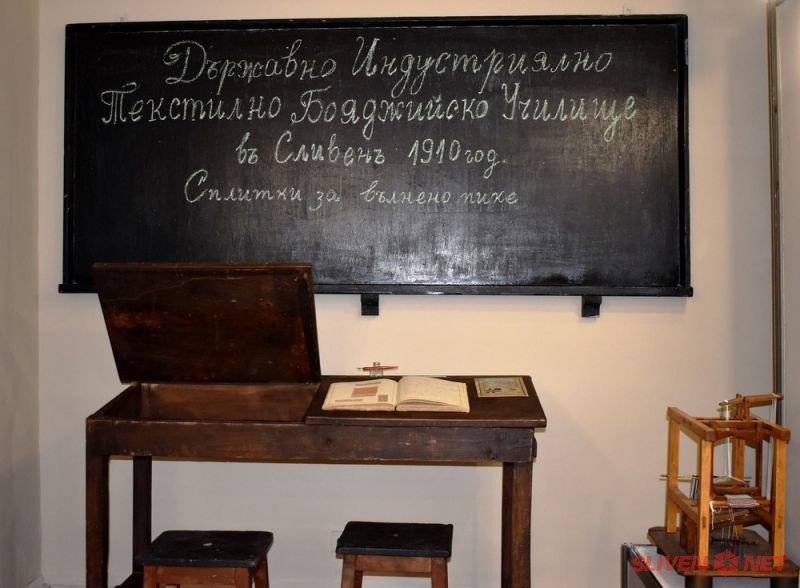 Държавно Индустриялно
Текстилно Бояджийско Училище
въ Сливенъ 1910 год.
Сплитки за вълнено пике
SLIVEN NET